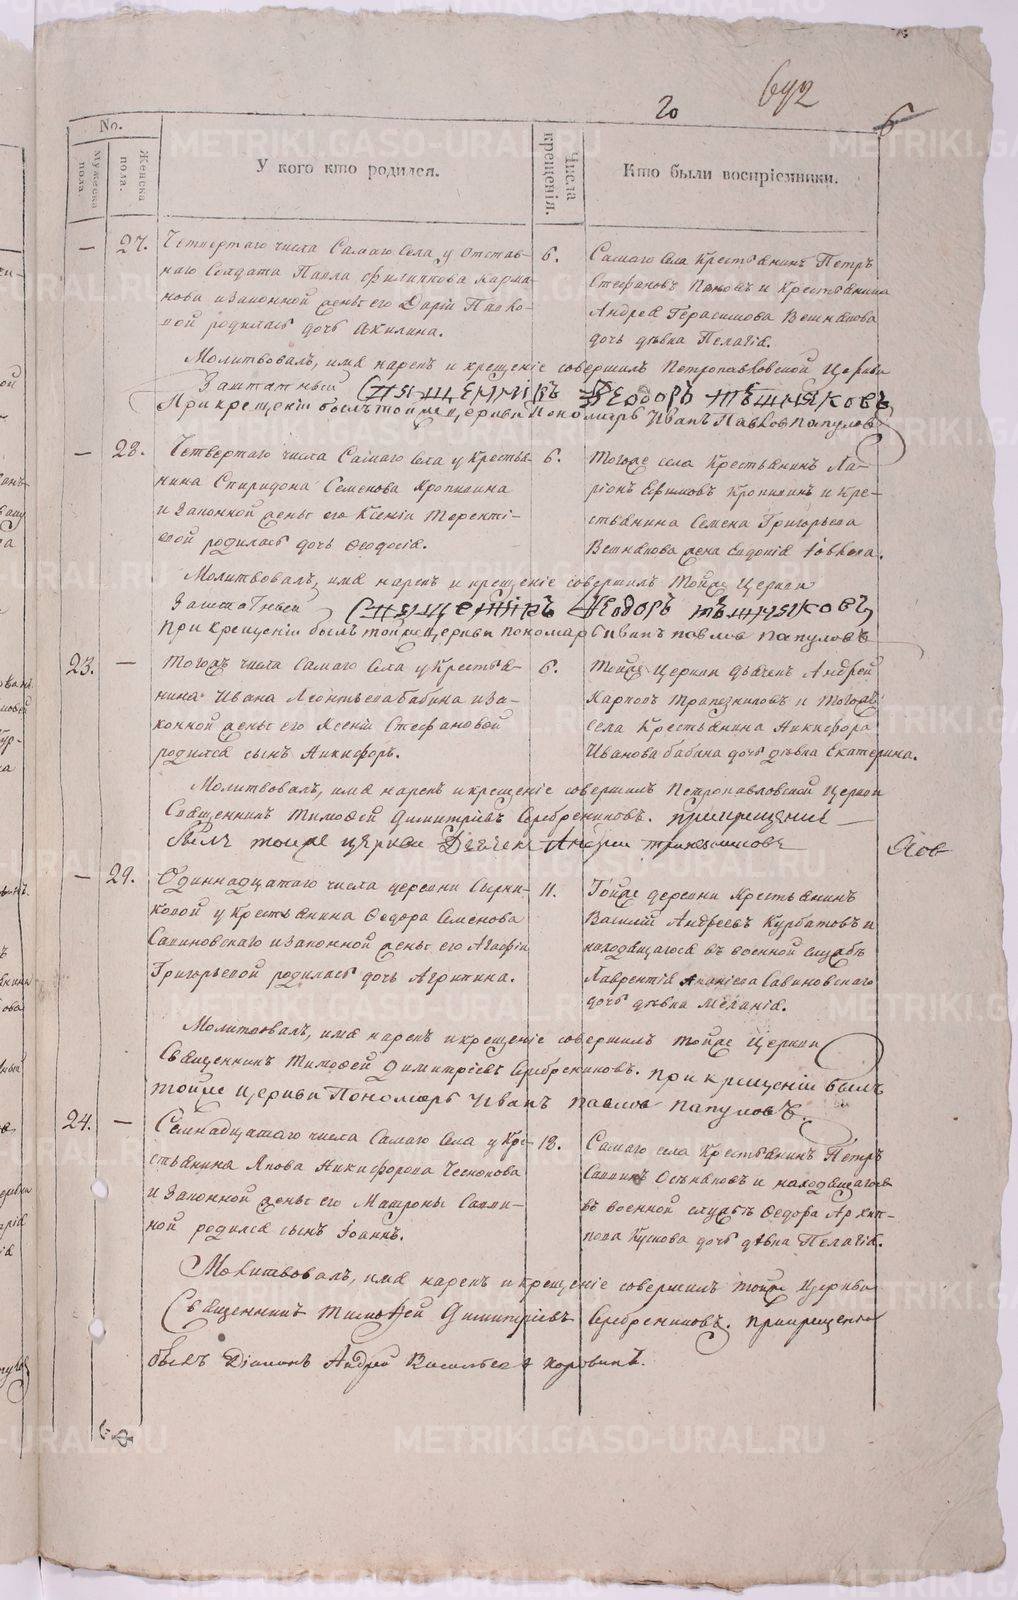 692
20
6
No.
Мужеска пола.
Женска пола.
У кого кто родился.
Числа крещенія.
Кто были воспріемники.
— 27. Четвертаго числа Самаго Села у Отстав-
наго Солдата Павла Филиппова Карма-
нова и законной жены его Дарьи Павло-
вой родилась дочь Акилина.
6.
Самаго села Крестьянинъ Петръ
Стефановъ Пановъ и Крестьянина
Андрея Герасимова Вешнякова
дочь дѣвка Пелагія.
Молитвовалъ, имя нарекъ и крещеніе совершилъ Петропавловской Церкви
Заштатный Священникъ Ѳеодоръ
При крещеніи былъ тойже церкви Пономарь Иванъ Павловъ Папуловъ
— 28. Четвертаго числа Самаго села у Крестья-
нина Спиридона Семенова Кропилина
и Законной жены его Ксеніи Теренті-
евой родилась дочь Ѳеодосія.
6.
Тогоже села Крестьянинъ Ла-
ріонъ Ефимовъ Кропилинъ и Кре-
стьянина Семена Григорьева
Вешнякова жена Евдокія Іовлева.
Молитвовалъ, имя нарекъ и крещеніе совершилъ Тойже Церкви
Заштатный Священникъ Ѳеодоръ
При крещеніи былъ тойже церкви пономарь Иванъ Павловъ Папуловъ
23. — Тогожъ числа Самаго Села у Крестья-
нина Ивана Леонтьева Бабина и за-
конной жены его Ксеніи Стефановой
родился сынъ Никифоръ.
6.
Тойже Церкви дьяченъ Андрей
Карповъ Трапезниковъ и Тогожъ
села Крестьянина Никифора
Иванова Бабина дочь дѣвка Екатерина.
Молитвовалъ, имя нарекъ и крещеніе совершилъ Петропавловской Церкви
Священникъ Тимофей Димитріевъ Серебрениковъ. При крещеніи
былъ тойже церкви Дьячекъ Андрей Трапезниковъ
— 29. Одиннадцатаго числа деревни Сырни-
ковой у Крестьянина Ѳедора Семенова
Савиновскаго и законной жены его Агафіи
Григорьевой родилась дочь Агрипина.
11.
Тойже деревни Крестьянинъ
Василій Андреевъ Курбатовъ и
находящагося въ военной службѣ
Лаврентія Ананіева Савиновскаго
дочь дѣвка Меланія.
Молитвовалъ, имя нарекъ и крещеніе совершилъ тойже Церкви
Священникъ Тимофей Димитріевъ Серебрениковъ. При крещеніи былъ
тойже Церкви Пономарь Иванъ Павловъ Папуловъ.
24. — Семнадцатаго числа Самаго Села у Кре-
стьянина Якова Никифорова Чеснокова
и Законной жены его Матроны Савви-
ной родился сынъ Іоаннъ.
18.
Самаго села Крестьянинъ Петръ
Саввинъ и находящагося
въ военной службѣ Ѳедора Архип-
пова Кускова дочь дѣвка Пелагія.
Молитвовалъ, имя нарекъ и крещеніе совершилъ тойже Церкви
Священникъ Тимофей Димитріевъ Серебрениковъ. При крещеніи
былъ Діаконъ Андрей Васильевъ Коровинъ.
METRIKI.GASO-URAL.RU